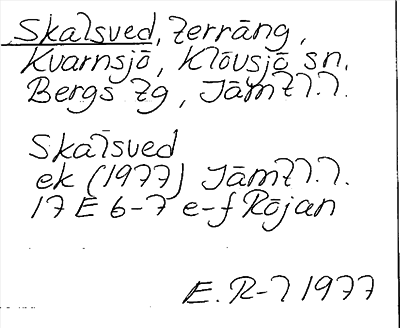 Skalsved, terräng,
Kvarnsjö, Klövsjö sn,
Bergs tg, Jämtl.l.
Skalsved
ek (1977) Jämtl.l.
17 E 6-7 e-f Röjan
E. R-l 1977